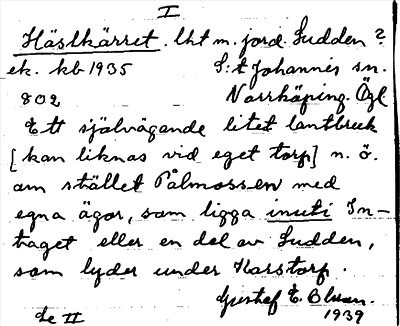 I
Hästkärret. lht m. jord. Sudden?
ek. kb 1935 S:t Johannis sn.
802 Norrköping. Ögl
Ett självägande litet lantbruk
[kan liknas vid eget torp] n. ö.
om stället Pålmossen med
egna ägor, som ligga inuti In-
taget eller en del av Sudden,
som lyder under Karstorp.
Gustaf E. Olsson.
Se II 1939